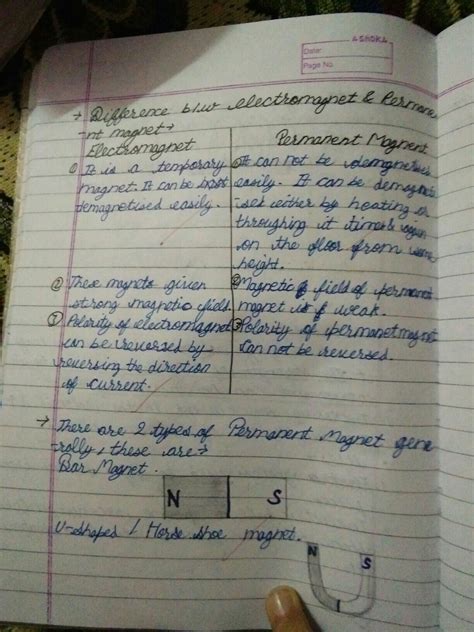 ASHOKA
Date:
Page No.
→ Difference b/w electromagnet & Permane
-nt magnet →
Electromagnet
① It is a temporary
magnet. It can be
demagnetised easily.
② These magnets given
strong magnetic field
③ Polarity of electromagnet
can be reversed by
reversing the direction
of current.
Permanent Magnent
① It can not be
easily. It can be
either by heating or
it times
on the floor from
height.
② Magnetic field of perment
magnet is weak.
③ Polarity of permanet magnet
can not be reversed.
→ There are 2 types of Permanent Magnet gene
-rally, these are →
Bar Magnet.
N S
U-shaped / Horse shoe magnet.
N S